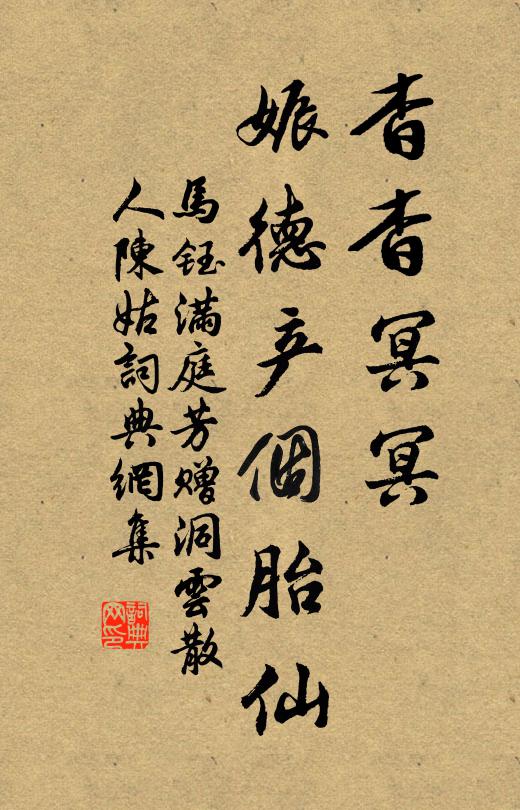 杳杳冥冥
娠德产個胎仙
馬鈺滿庭芳贈洞雲散
人陳姑詞典網集
詞典
网印